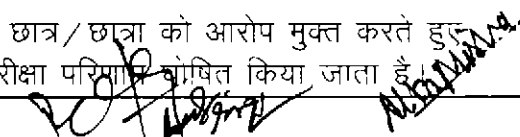 छात्र/छात्रा को आरोप मुक्त करते हुए
रीक्षा परिणाम घोषित किया जाता है।